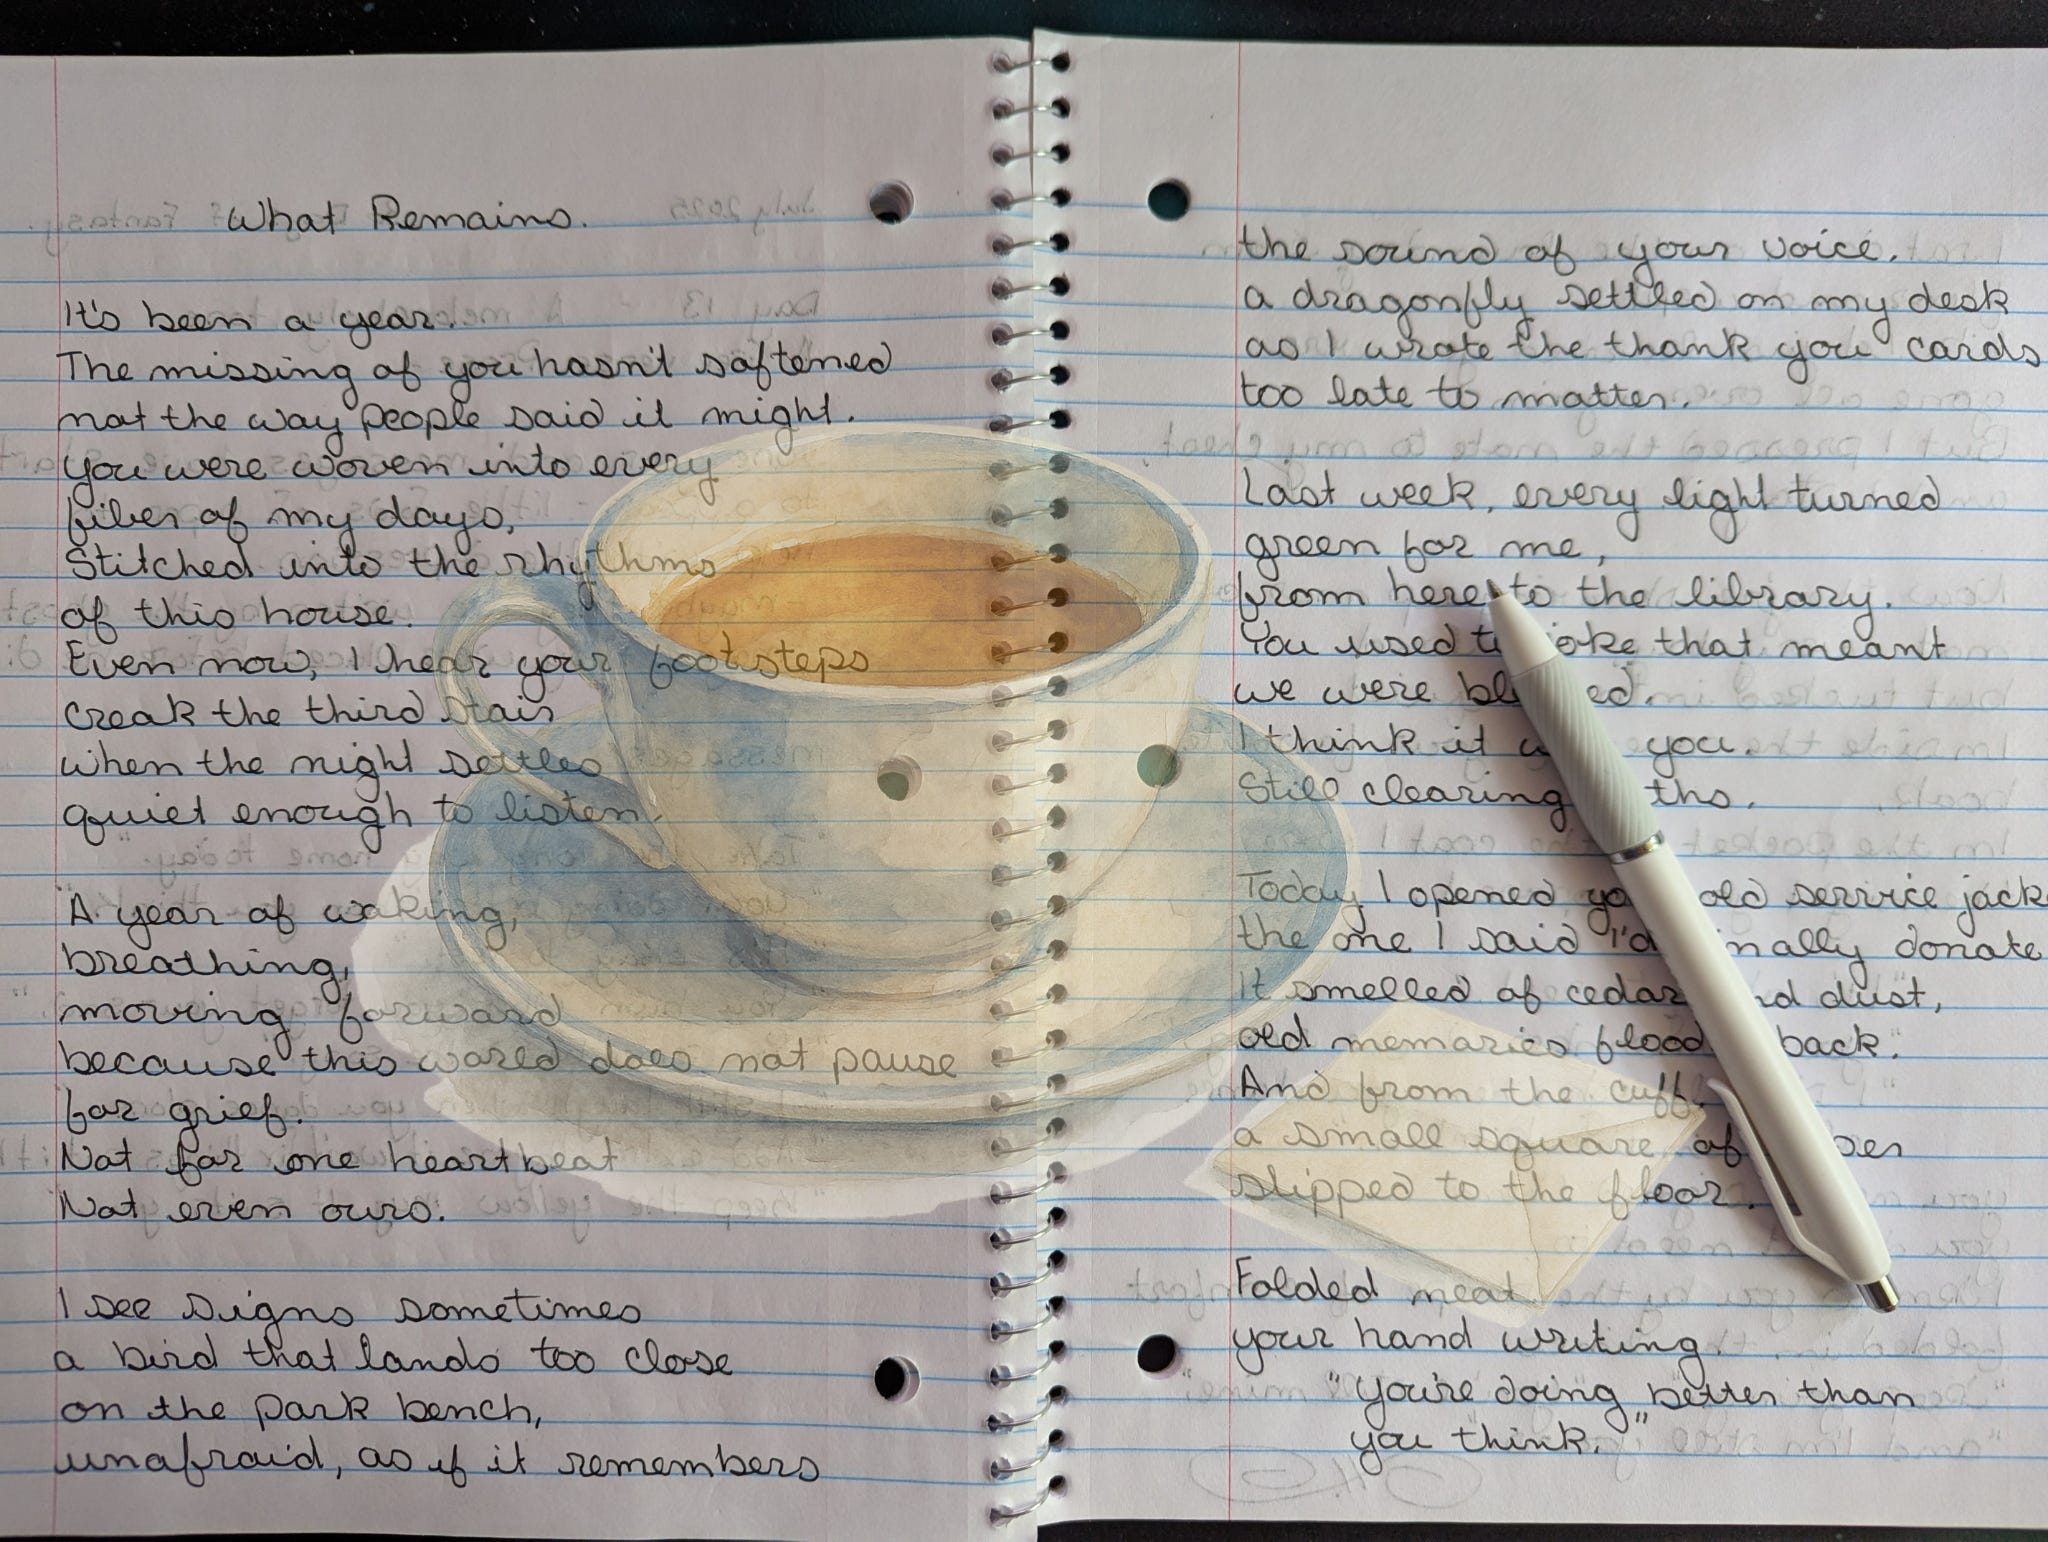 What Remains.
It's been a year.
The missing of you hasn't softened
not the way people said it might.
you were woven into every
fiber of my days,
Stitched into the rhythms
of this house.
Even now, I hear your footsteps
creak the third stair
when the night settles
quiet enough to listen.
A year of waking,
breathing,
moving forward
because this world does not pause
for grief.
Not for one heartbeat
Not even ours.
I see signs sometimes
a bird that lands too close
on the park bench,
unafraid, as if it remembers
the sound of your voice.
a dragonfly settled on my desk
as I wrote the thank you cards
too late to matter.
Last week, every light turned
green for me,
from here to the library.
You used to joke that meant
we were bl ed.
I think it w you.
Still clearing ths.
Today I opened yo old service jack
the one I said I'd inally donate
It smelled of cedar nd dust,
old memories flood back.
And from the cuff,
a small square of per
slipped to the floor.
Folded neat
your hand writing
"you're doing better than
you think."